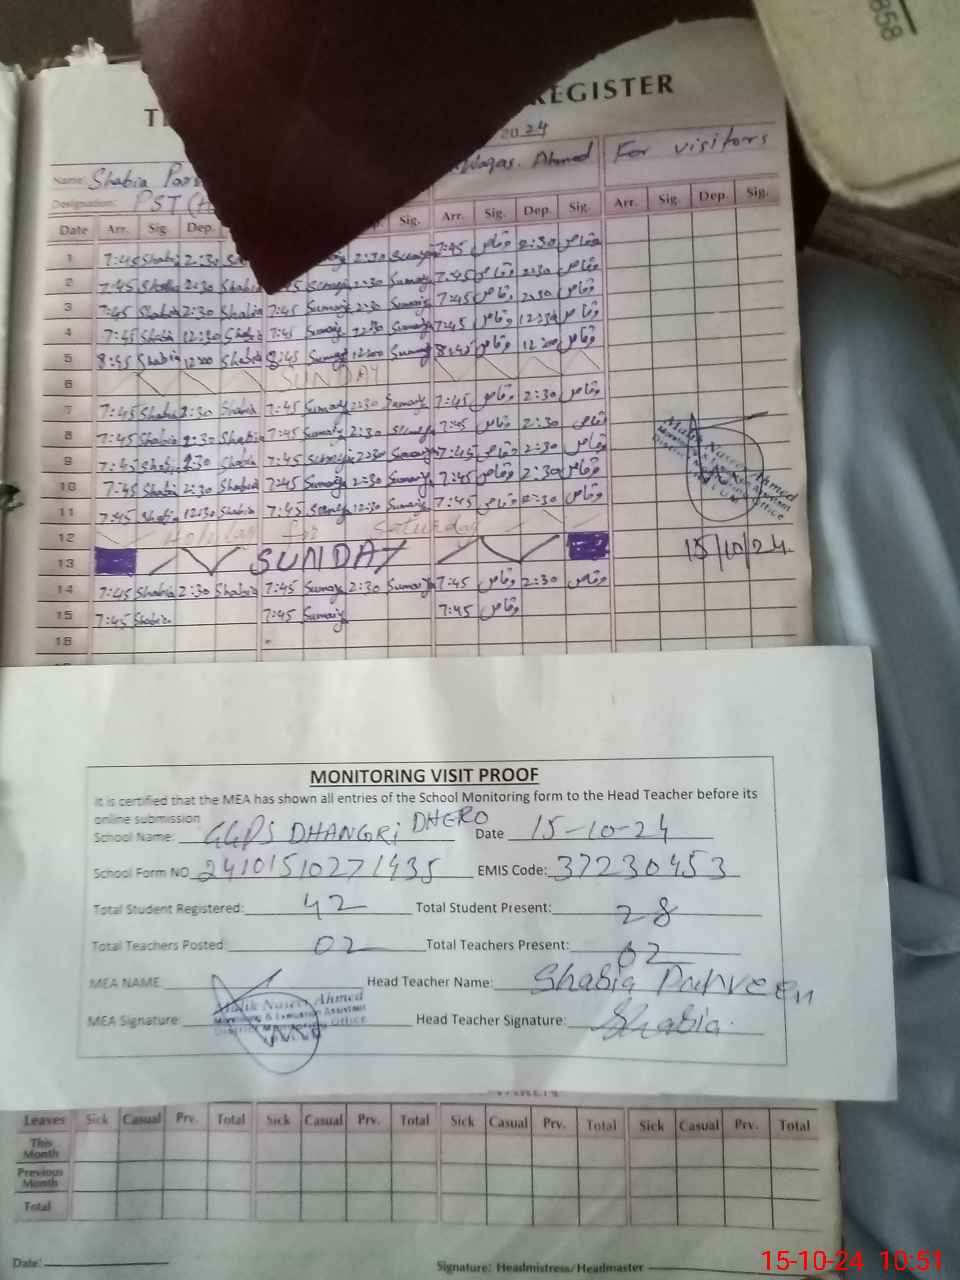 858
REGISTER
2024
Name: Shabia Waqas. Ahmed For visitors
Designation: PST
Date Arr. Sig. Dep. Sig. Arr. Sig. Dep. Sig. Arr. Sig. Dep. Sig.
1 7:45 Shabia 2:30 2:30 Sumaiya 7:45 وقاص 2:30 وقاص
2 7:45 Shabia 2:30 Shabia 7:45 Sumaiya 2:30 Sumaiya 7:45 وقاص 2:30 وقاص
3 7:45 Shabia 2:30 Shabia 7:45 Sumaiya 2:30 Sumaiya 7:45 وقاص 2:30 وقاص
4 7:45 Shabia 12:30 Shabia 7:45 Sumaiya 12:30 Sumaiya 7:45 وقاص 12:30 وقاص
5 8:45 Shabia 12:00 Shabia 8:45 Sumaiya 12:00 Sumaiya 8:45 وقاص 12:00 وقاص
6 SUNDAY
7 7:45 Shabia 2:30 Shabia 7:45 Sumaiya 2:30 Sumaiya 7:45 وقاص 2:30 وقاص
8 7:45 Shabia 2:30 Shabia 7:45 Sumaiya 2:30 Sumaiya 7:45 وقاص 2:30 وقاص
9 7:45 Shabia 2:30 Shabia 7:45 Sumaiya 2:30 Sumaiya 7:45 وقاص 2:30 وقاص
10 7:45 Shabia 2:30 Shabia 7:45 Sumaiya 2:30 Sumaiya 7:45 وقاص 2:30 وقاص
11 7:45 Shabia 12:30 Shabia 7:45 Sumaiya 12:30 Sumaiya 7:45 وقاص 12:30 وقاص
12 Holiday for Saturday
13 SUNDAY
Malik Naseer Ahmed
15/10/24
14 7:45 Shabia 2:30 Shabia 7:45 Sumaiya 2:30 Sumaiya 7:45 وقاص 2:30 وقاص
15 7:45 Shabia 7:45 Sumaiya 7:45 وقاص
16
MONITORING VISIT PROOF
It is certified that the MEA has shown all entries of the School Monitoring form to the Head Teacher before its
online submission
School Name: GGPS DHANGRI DHERO Date 15-10-24
School Form NO 24101510271435 EMIS Code: 37230453
Total Student Registered: 42 Total Student Present: 28
Total Teachers Posted: 02 Total Teachers Present: 02
MEA NAME Head Teacher Name: Shabia Parveen
Malik Naseer Ahmed
Monitoring & Evaluation Assistant
District Monitoring Office
MEA Signature: Head Teacher Signature: Shabia.
Leaves Sick Casual Prv. Total Sick Casual Prv. Total Sick Casual Prv. Total Sick Casual Prv. Total
This Month
Previous Month
Total
Date: Signature: Headmistress/Headmaster
15-10-24 10:51